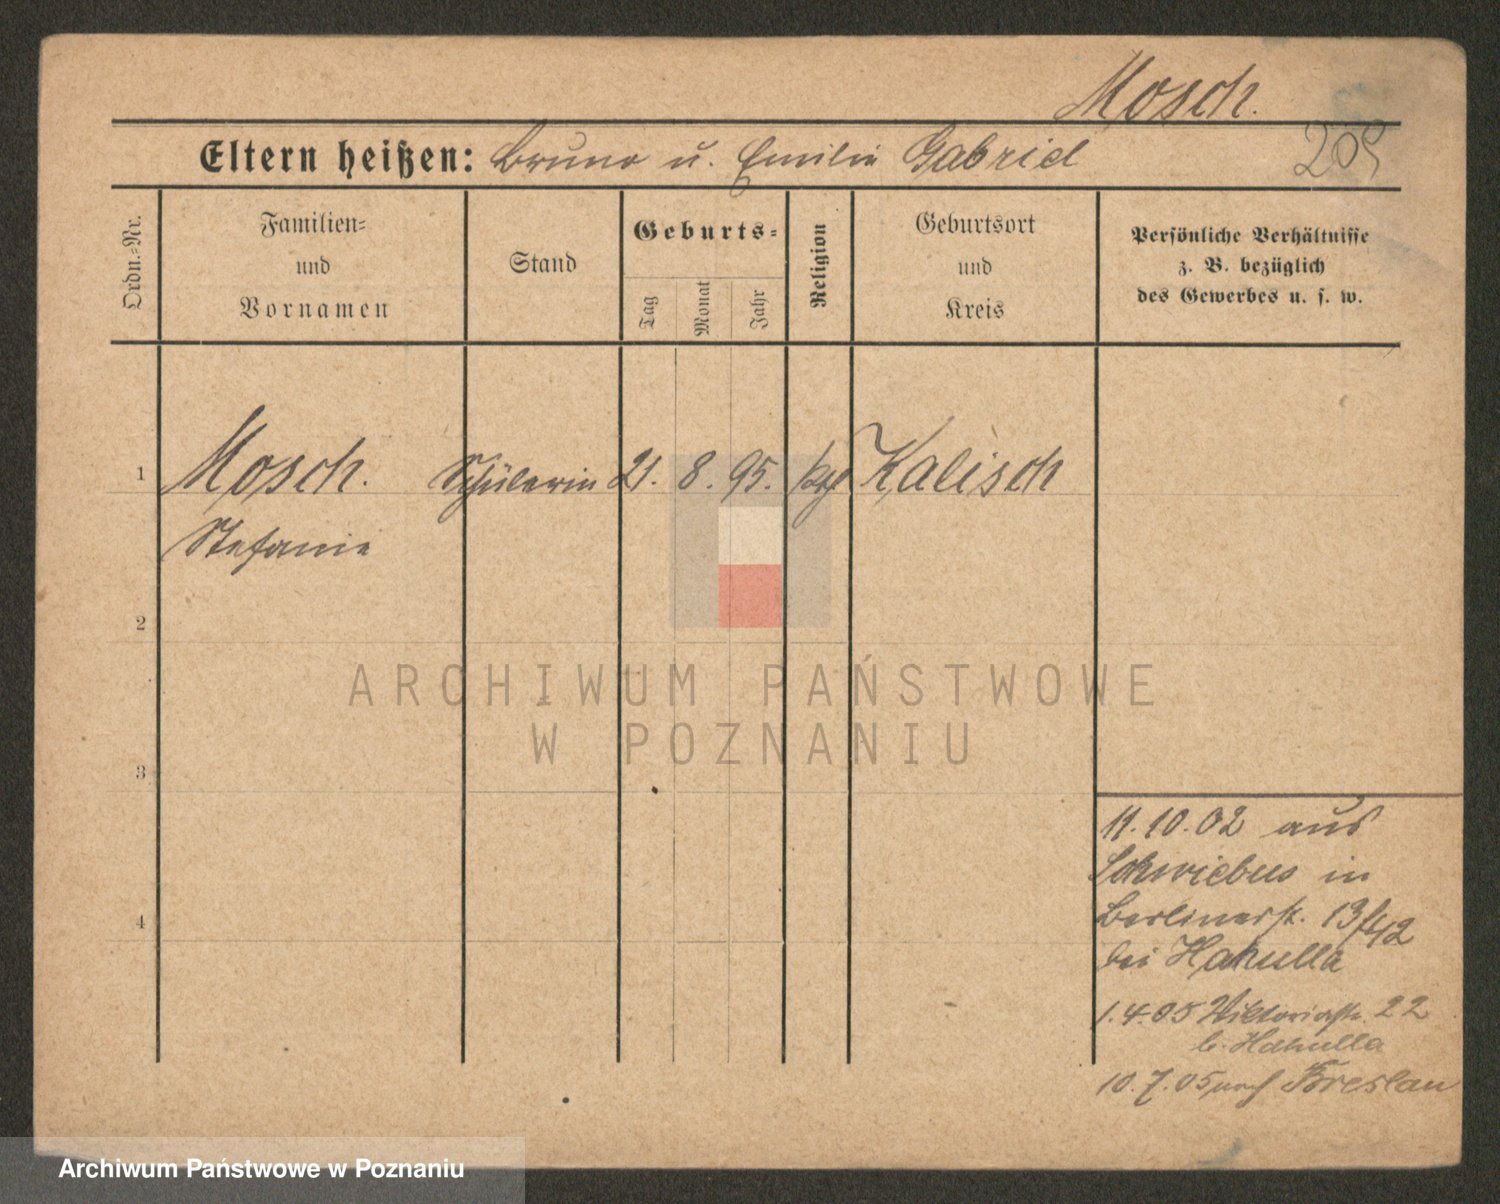 Mosch.
Eltern heißen: Bruno u. Emilie Gabriel
205
Ordn.=Nr.
Familien=
und
Vornamen
Stand
Geburts=
Tag
Monat
Jahr
Religion
Geburtsort
und
Kreis
Persönliche Verhältnisse
z. B. bezüglich
des Gewerbes u. s. w.
1 Mosch. Schülerin 21. 8. 95. Kalisch
Stefanie
2
3
4
ARCHIWUM PAŃSTWOWE
W POZNANIU
11.10.02 aus
Schwiebus in
Berlinerstr. 13/42
bei Hakulla
1.4.05 Viktoriastr. 22
b. Hakulla
10.7.05 nach Breslau
Archiwum Państwowe w Poznaniu